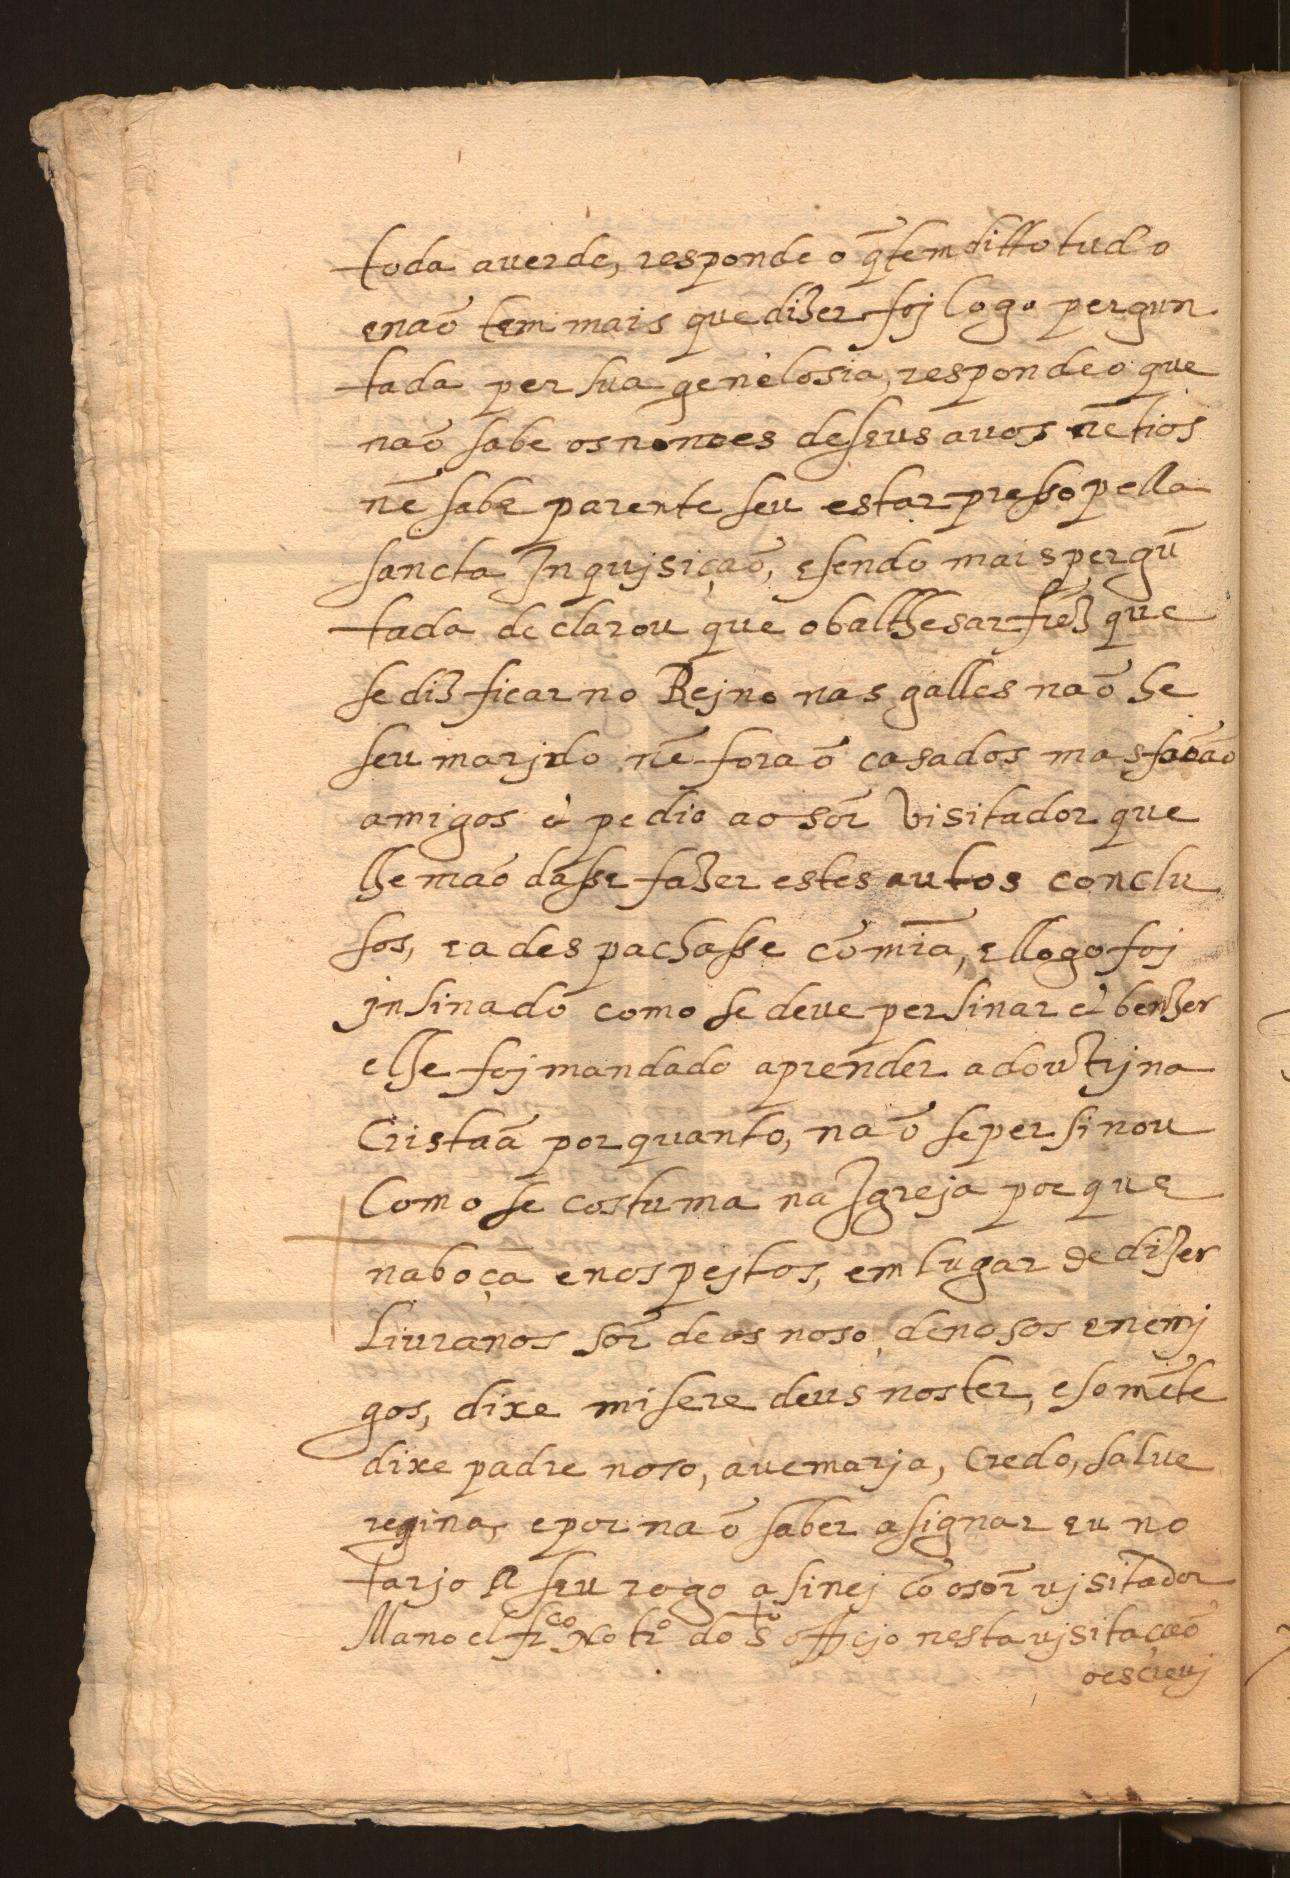 toda a uerde, responde o q̃ tem ditto tudo
e naõ tem mais que dizer foj logo pergun
tada per sua genelosia, respondeo que
naõ sabe os nomes de seus auos nẽ tios
nẽ sabe parente seu estar presso pella
sancta Inqujsiçaõ, e sendo mais pergũ
tada declarou que o balthesar frz̃ que
se diz ficar no Rejno nas galles naõ he
seu marjdo nẽ foraõ casados mas
amigos e pedio ao sõr Visitador que
lhe maõdasse fazer estes autos conclu
sos, e a despachasse cõ mĩa, e llogo foj
jnsinado como se deue persinar e benzer
e lhe foj mandado aprender a doutrjna
Cristaã por quanto, naõ se persinou
Como se costuma na Igreja por que
na boça e nos pejtos, em lugar de dizer
Liuranos sõr deos noso, de nosos enemj
gos, dixe misere deus noster, e somẽte
dixe padre noso, auemarja, Credo, salue
regina, e por naõ saber asignar eu no
tarjo A seu rogo asinej cõ o sõr vjsitador
Manoel fr.co Notr.o do s.to officjo nesta vjsitaçaõ
o escreuj